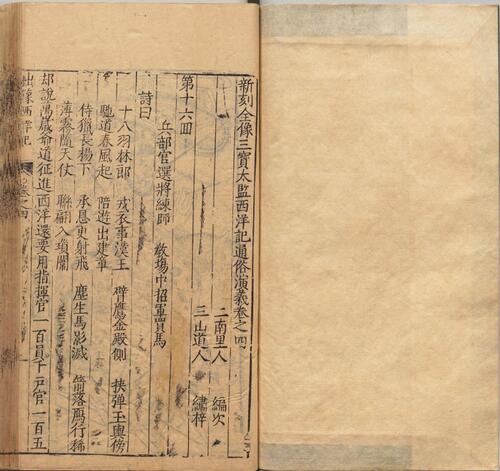 新刻全像三寳太監西洋記通俗演義卷之四
二南里人　編次
三山道人　繡梓
第十六囬
兵部官選將練師　教塲中招軍買馬
詩曰
十八羽林郎　戎衣事漢王　臂鷹金殿側　挾彈玉輿傍
馳道春風起　陪遊出建章
侍獵長楊下　承恩更射飛　塵生馬影滅　箭落鴈行稀
薄霧隨天仗　聯翩入瑣闈
却說萬歲爺道征進西洋還要用指揮官一百員千戸官一百五
出像西洋記　卷之四